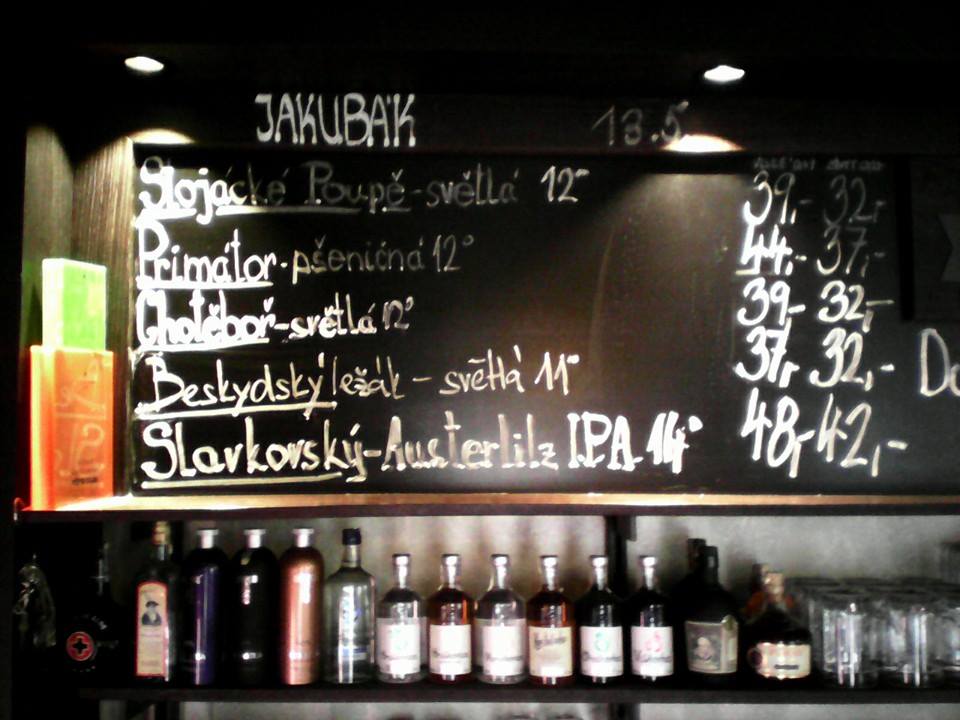 JAKUBÁK 13.5.
Slojácké Poupě - světlá 12° 39,- 32,-
Primátor - pšeničná 12° 44,- 37,-
Chotěboř - světlá 12° 39,- 32,-
Beskydský ležák - světlá 11° 37,- 32,-
Slavkovský - Austerlitz IPA 14° 48,- 42,-